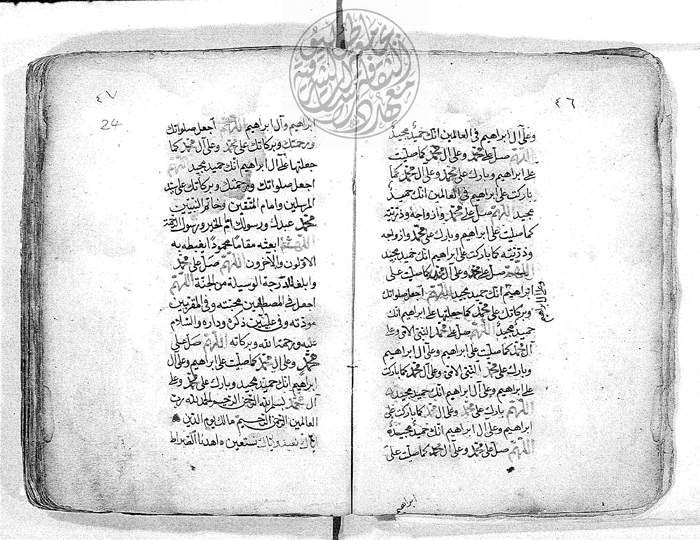 ٤٦
وعلى آل ابراهيم في العالمين انك حميد مجيد
اللهم صل على محمد وعلى آل محمد كما صليت
على ابراهيم وبارك على محمد وعلى آل محمد كما
باركت على ابراهيم في العالمين انك حميد
مجيد اللهم صل على محمد وازواجه وذريته
كما صليت على ابراهيم وبارك على محمد وازواجه
وذريته كما باركت على ابراهيم انك حميد مجيد
اللهم صل على محمد وعلى آل محمد كما صليت على
ابراهيم انك حميد مجيد اللهم اجعل صلواتك
وبركاتك على محمد كما جعلتها على ابراهيم انك
حميد مجيد اللهم صل على محمد النبي الامي وعلى
آل محمد كما صليت على ابراهيم وعلى آل ابراهيم
وبارك على محمد النبي الامي وعلى آل محمد كما باركت
على ابراهيم وعلى آل ابراهيم انك حميد مجيد
اللهم بارك على محمد وعلى آل محمد كما باركت على
ابراهيم وعلى آل ابراهيم انك حميد مجيد
اللهم صل على محمد وعلى آل محمد كما صليت على
ابراهيم
وعلى آل ابراهيم
٤٧
24
ابراهيم وآل ابراهيم اللهم اجعل صلواتك
ورحمتك وبركاتك على محمد وعلى آل محمد كما
جعلتها على آل ابراهيم انك حميد مجيد اللهم
اجعل صلواتك ورحمتك وبركاتك على سيد
المرسلين وامام المتقين وخاتم النبيين
محمد عبدك ورسولك امام الخير ورسول الرحمة
اللهم ابعثه مقاما محمودا يغبطه به
الاولون والآخرون اللهم صل على محمد
وابلغه الدرجة الوسيلة من الجنة اللهم
اجعل في المصطفين محبته وفي المقربين
مودته وفي عليين ذكره وداره والسلام
عليه ورحمة الله وبركاته اللهم صل على
محمد وعلى آل محمد كما صليت على ابراهيم وعلى آل
ابراهيم انك حميد مجيد وبارك على محمد وعلى
آل محمد بسم الله الرحمن الرحيم الحمد لله رب
العالمين الرحمن الرحيم مالك يوم الدين
اياك نعبد واياك نستعين اهدنا الصراط